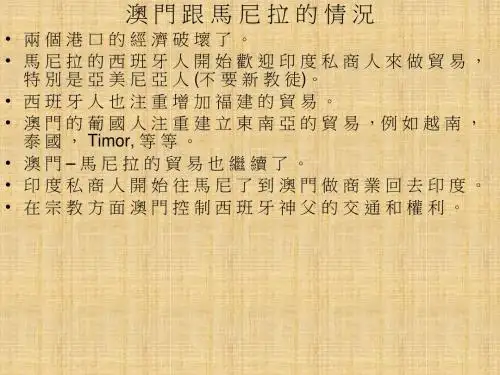 澳門跟馬尼拉的情況
• 兩個港口的經濟破壞了。
• 馬尼拉的西班牙人開始歡迎印度私商人來做貿易，
特別是亞美尼亞人(不要新教徒)。
• 西班牙人也注重增加福建的貿易。
• 澳門的葡國人注重建立東南亞的貿易,例如越南，
泰國，Timor, 等等。
• 澳門–馬尼拉的貿易也繼續了。
• 印度私商人開始往馬尼了到澳門做商業回去印度。
• 在宗教方面澳門控制西班牙神父的交通和權利。